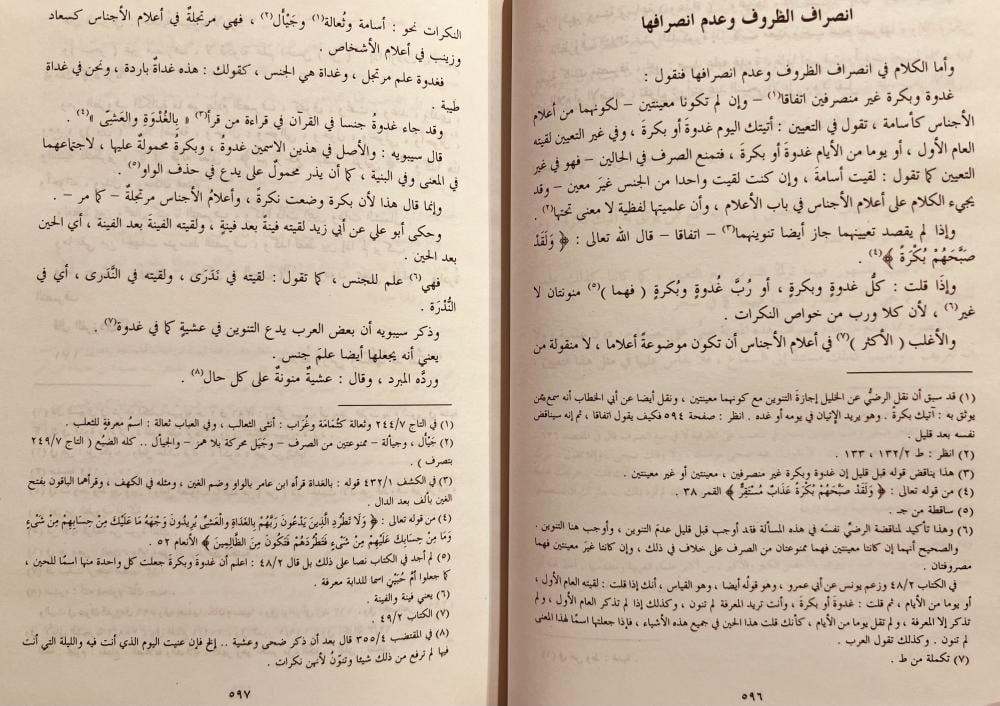 انصراف الظروف وعدم انصرافها
وأما الكلام في انصراف الظروف وعدم انصرافها فنقول :
غدوة وبكرة غير منصرفين اتفاقا(١) – وإن لم تكونا معينتين – لكونهما من أعلام
الأجناس كأسامة ، تقول في التعيين : أتيتك اليوم غدوةَ أو بكرةَ ، وفي غير التعيين لقيته
العام الأول ، أو يوما من الأيام غدوةَ أو بكرةَ ، فتمنع الصرف في الحالين – فهو في غير
التعيين كما تقول : لقيت أسامة ، وإن كنت لقيت واحدا من الجنس غيرَ معين – وقد
يجيء الكلام على أعلام الأجناس في باب الأعلام ، وأن علميتها لفظية لا معنى تحتها(٢) .
وإذا لم يقصد تعيينهما جاز أيضا تنوينهما(٣) – اتفاقا – قال الله تعالى : ﴿ وَلَقَدْ
صَبَّحَهُمْ بُكْرَةً ﴾(٤) .
وإذَا قلت : كلُّ غدوةٍ وبكرةٍ ، أو رُبَّ غُدوةٍ وبُكرةٍ ( فهما )(٥) منونتان لا
غير(٦) ، لأن كلا ورب من خواص النكرات .
والأغلب ( الأكثر )(٧) في أعلام الأجناس أن تكون موضوعةً أعلاما ، لا منقولة من
(١) قد سبق أن نقل الرضيُّ عن الخليل إجازةَ التنوين مع كونهما معينتين ، ونقل أيضا عن أبي الخطاب أنه سمع من
يوثق به : آتيك بكرةً . وهو يريد الإتيان في يومه أو غده . انظر : صفحة ٥٩٤ فكيف يقول اتفاقا ، ثم إنه سيناقض
نفسه بعد قليل .
(٢) انظر : ط ١٣٢/٢ ، ١٣٣ .
(٣) هذا يناقض قوله قبل قليل إن غدوة وبكرة غير منصرفين ، معينتين أو غير معينتين .
(٤) من قوله تعالى : ﴿ وَلَقَدْ صَبَّحَهُمْ بُكْرَةً عَذَابٌ مُسْتَقِرٌّ ﴾ القمر ٣٨ .
(٥) ساقطة من جـ .
(٦) وهذا تأكيد لمناقضة الرضيّ نفسَه في هذه المسألة فقد أوجب قبل قليل عدمَ التنوين ، وأوجب هنا التنوين .
والصحيح أنهما إن كانتا معينتين فهما ممنوعتان من الصرف على خلاف في ذلك ، وإن كانتا غيرَ معينتين فهما
مصروفتان .
في الكتاب ٤٨/٢ وزعم يونس عن أبي عمرو ، وهو قولُه أيضا ، وهو القياس ، أنك إذا قلت : لقيته العام الأول ،
أو يوما من الأيام ، ثم قلت : غدوةَ أو بكرةَ ، وأنت تريد المعرفة لم تنون ، وكذلك إذا لم تذكر العام الأول ، ولم
تذكر إلا المعرفة ، ولم تقل يوما من الأيام ، كأنك قلت هذا الحين في جميع هذه الأشياء ، فإذا جعلتها اسمًا لهذا المعنى
لم تنون . وكذلك تقول العرب .
(٧) تكملة من ط .
٥٩٦
النكرات نحو : أسامة وثُعالة(١) وجَيْأل(٢) ، فهي مرتجلةٌ في أعلام الأجناس كسعاد
وزينب في أعلام الأشخاص .
فغدوة علم مرتجل ، وغداة هي الجنس ، كقولك : هذه غداةٌ باردة ، ونحن في غداة
طيبة .
وقد جاء غدوةُ جنسا في القرآن في قراءة من قرأ(٣) « بِالغُدْوَةِ وَالْعَشِيّ »(٤) .
قال سيبويه : والأصل في هذين الاسمين غدوةُ ، وبكرةُ محمولةٌ عليها ، لاجتماعهما
في المعنى وفي البنية ، كما أن يذر محمولٌ على يدع في حذف الواو(٥) .
وإنما قال هذا لأن بكرة وضعت نكرةً ، وأعلامُ الأجناس مرتجلةٌ – كما مر – .
وحكى أبو علي عن أبي زيد لقيته فينةً بعد فينةٍ ، ولقيته الفينةَ بعد الفينة ، أي الحين
بعد الحين .
فهي(٦) علم للجنس ، كما تقول : لقيته في نَدَرَى ، ولقيته في النَّدَرى ، أي في
النُّدْرَة .
وذكر سيبويه أن بعض العرب يدع التنوين في عشيةٍ كما في غدوة(٧) .
يعني أنه يجعلها أيضا علمَ جنس .
وردَّه المبرد ، وقال : عشيةٌ منونةٌ على كل حال(٨) .
(١) في التاج ٢٤٤/٧ وثعالة كثُمَامَة وغُرَاب : أنثى الثعالب ، وفي العباب ثعالة : اسمُ معرفةٍ للثعلب .
(٢) جَيْأل ، وجيألة – ممنوعتين من الصرف – وجَيَل محركة بلا همز – والجيأل .. كله الضبُع ( التاج ٢٤٩/٧
بتصرف ) .
(٣) في الكشف ٤٣٢/١ قوله : بالغداة قرأه ابن عامر بالواو وضم الغين ، ومثله في الكهف ، وقرأهما الباقون بفتح
الغين بألف بعد الدال .
(٤) من قوله تعالى : ﴿ وَلَا تَطْرُدِ الَّذِينَ يَدْعُونَ رَبَّهُمْ بِالغَدَاةِ وَالْعَشِيِّ يُرِيدُونَ وَجْهَهُ مَا عَلَيْكَ مِنْ حِسَابِهِمْ مِنْ شَيْءٍ
وَمَا مِنْ حِسَابِكَ عَلَيْهِمْ مِنْ شَيْءٍ فَتَطْرُدَهُمْ فَتَكُونَ مِنَ الظَّالِمِينَ ﴾ الأنعام ٥٢ .
(٥) لم أجد في الكتاب نصا على ذلك بل قال ٤٨/٢ : اعلم أن غدوة وبكرةَ جعلت كل واحدة منها اسمًا للحين ،
كما جعلوا أُمَّ حُبَيْنٍ اسما للدابة معرفة .
(٦) يعني فينة والفينة .
(٧) الكتاب ٤٩/٢ .
(٨) في المقتضب ٣٥٥/٤ قال بعد أن ذكر ضحى وعشية .. إلخ فإن عنيت اليوم الذي أنت فيه والليلة التي أنت
فيها لم ترفع من ذلك شيئا وتنوّنُ لأنهن نكرات .
٥٩٧